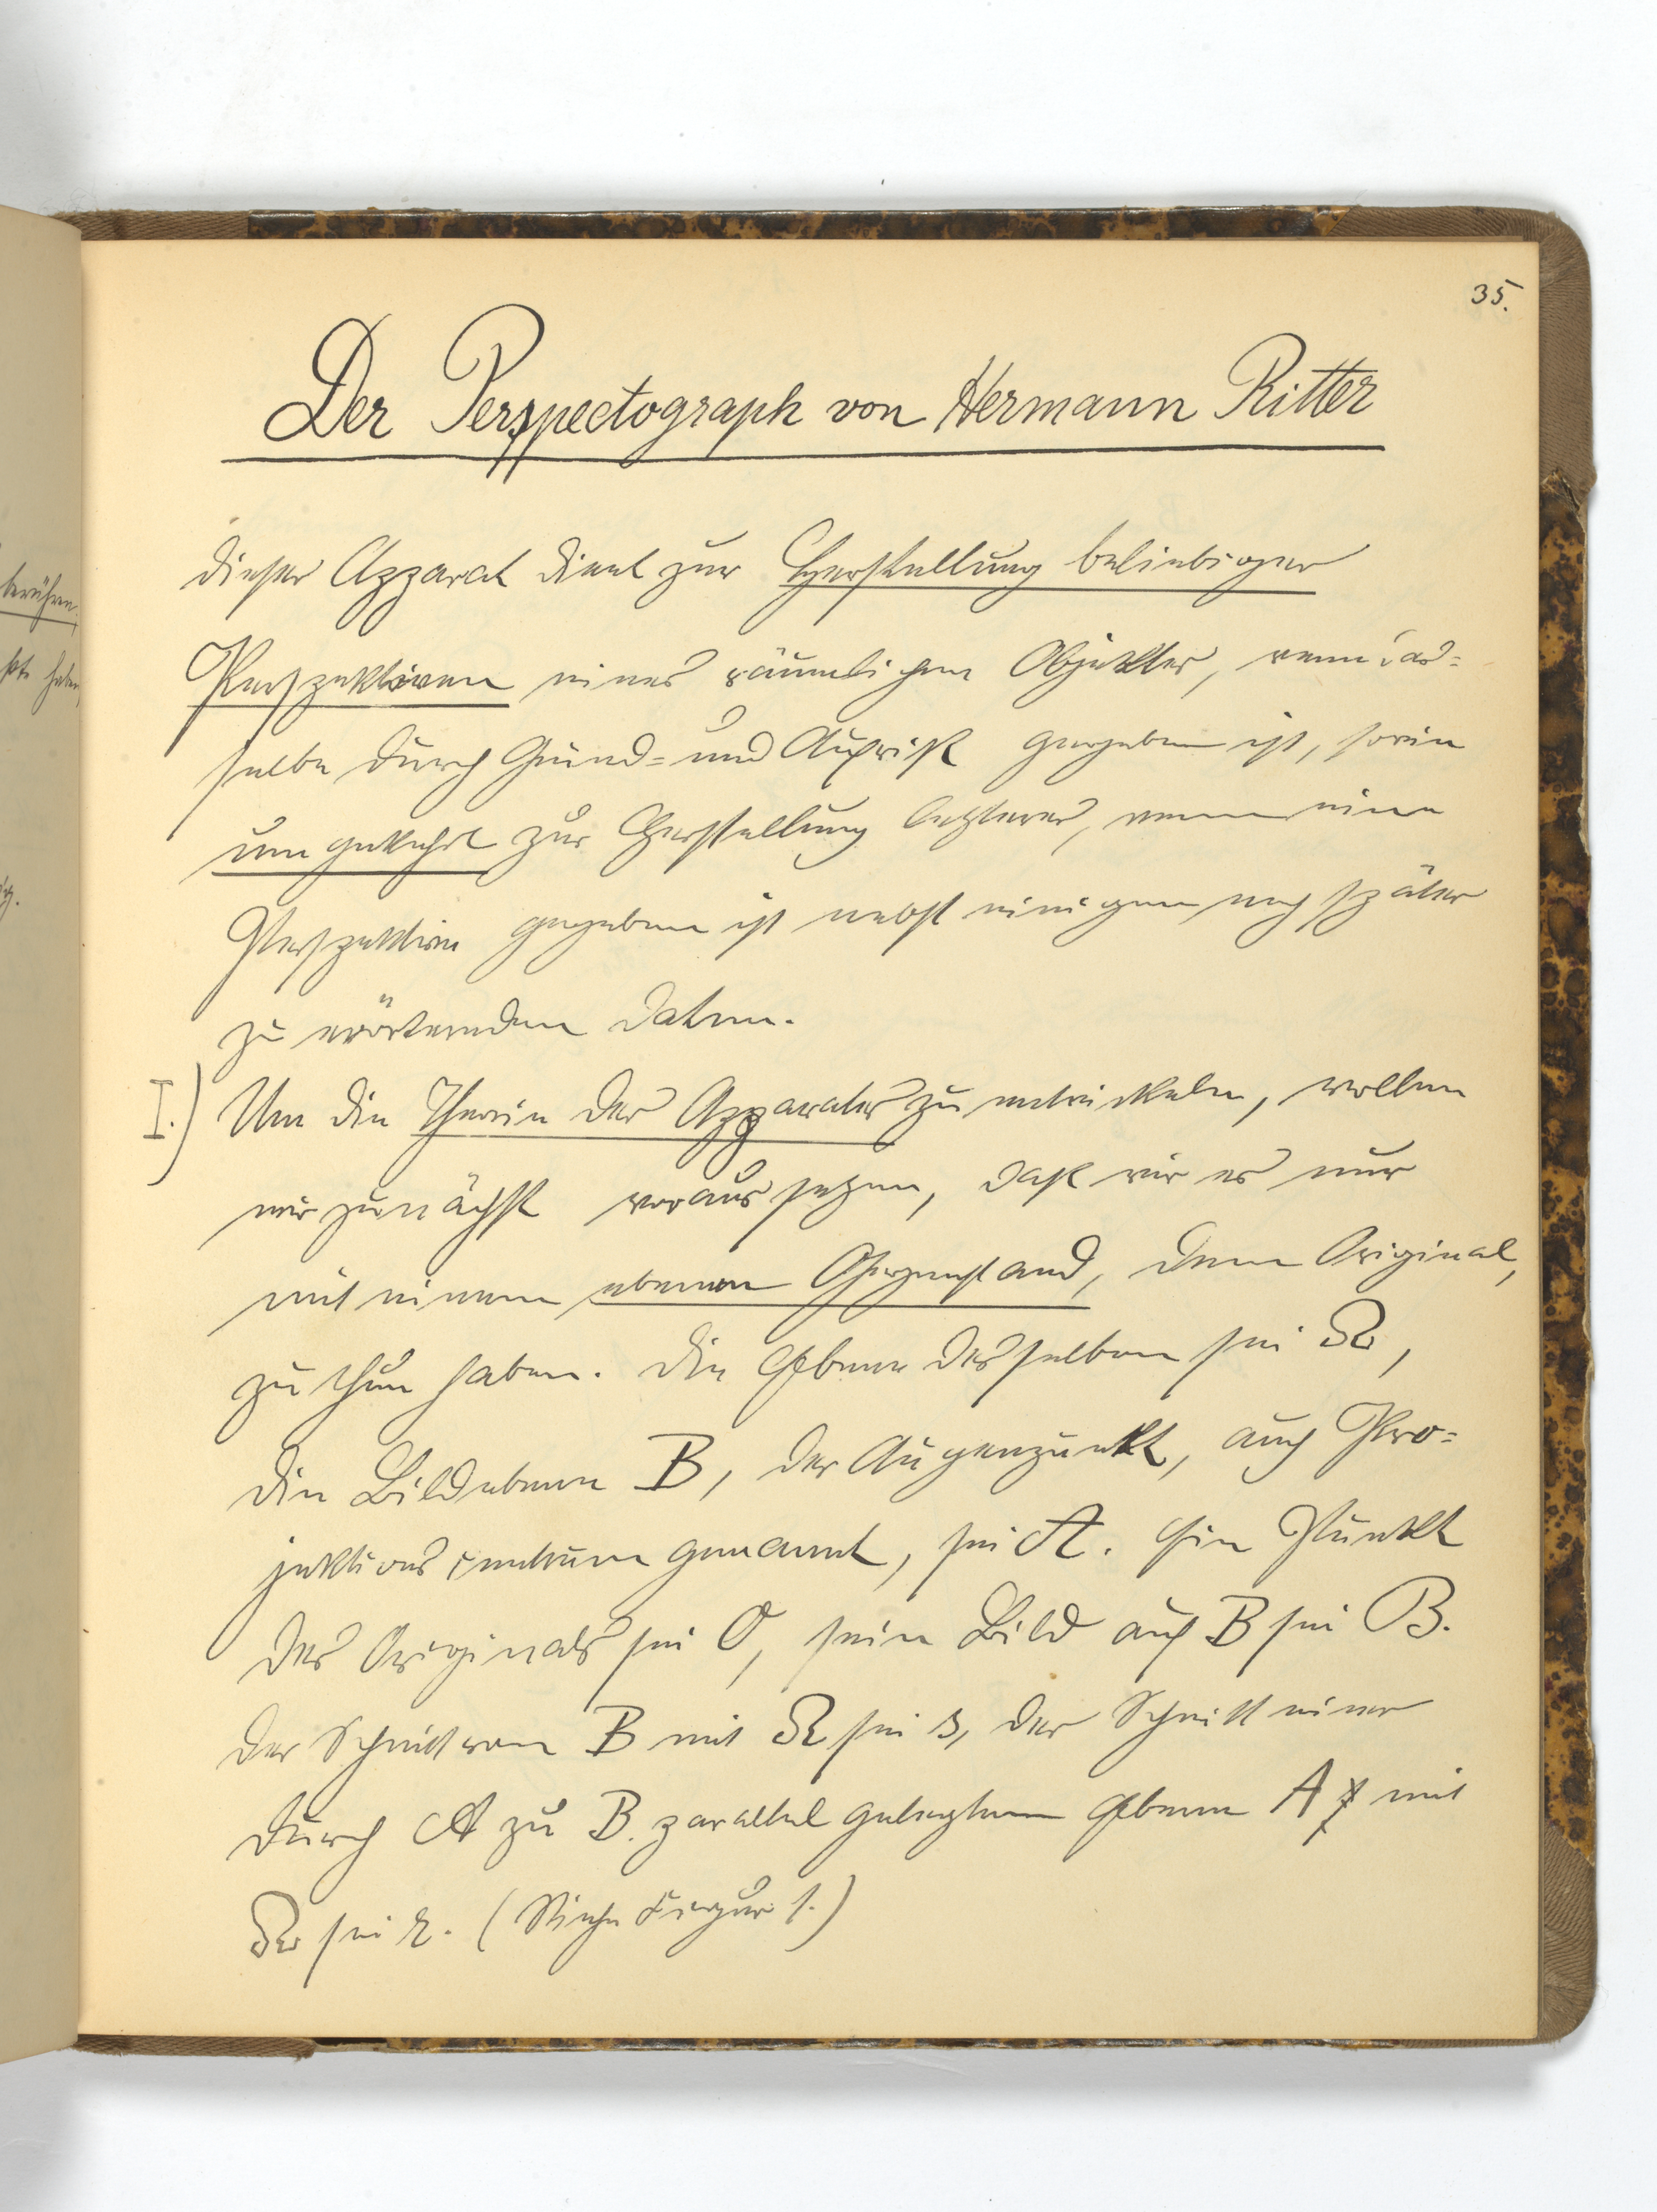 35.
Der Perspectograph von Hermann Ritter
Dieser Apparat dient zur Herstellung beliebiger
Perspektiven eines räumlichen Objektes, wenn das=
selbe durch Grund= und Aufriß gegeben ist, sowie
umgekehrt zur Herstellung letzterer, wenn eine
Perspektive gegeben ist nebst einigen noch später
zu erörternden Daten.
I.) Um die Theorie des Apparates zu entwickeln, wollen
wir zunächst voraussetzen, daß wir es nur
mit einem ebenen Gegenstand, dem Original,
zu thun haben. Die Ebene desselben sei Ω,
die Bildebene B, der Augenpunkt, auch Pro=
jektionscentrum genannt, sei A. Ein Punkt
des Originals sei O, sein Bild auf B sei B.
Der Schnitt von B mit Ω sei s, der Schnitt einer
durch A zu B. parallel gelegten Ebene A mit
Ω sei r. (Siehe Figur 1.)
berühren.
haben,